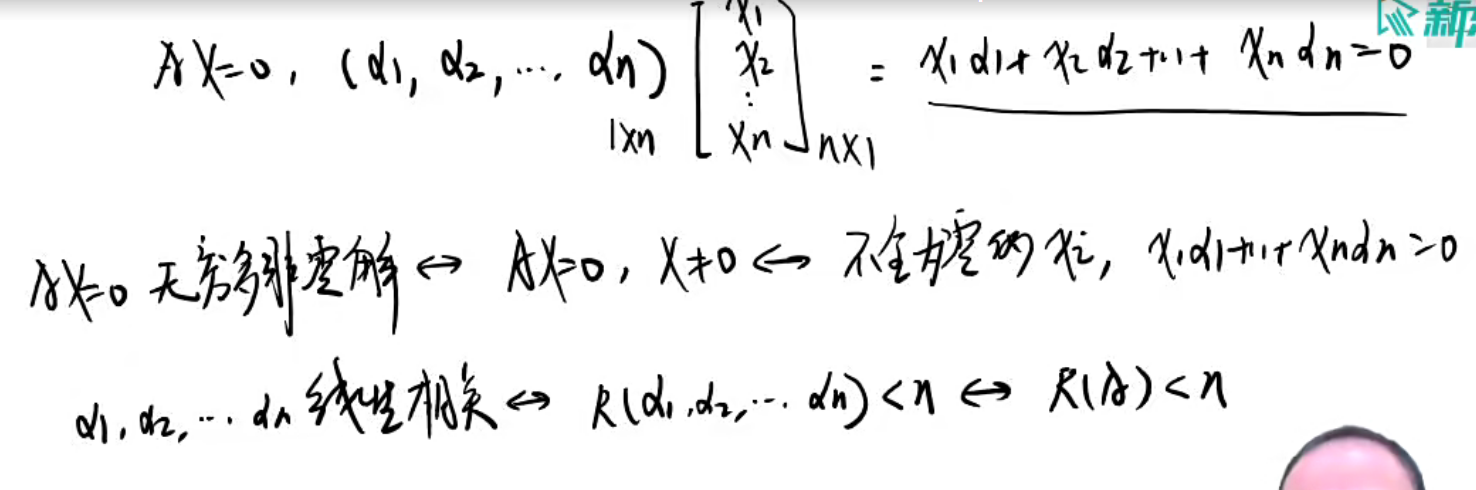 新
AX=0, (α1, α2, …, αn) [x1 x2 ⋮ xn] = x1α1+x2α2+…+xnαn=0
1×n n×1
AX=0 无穷多非零解 ↔ AX=0, X≠0 ↔ 不全为零的 xi, x1α1+…+xnαn=0
α1, α2, … αn 线性相关 ↔ R(α1,α2,… αn)<n ↔ R(A)<n